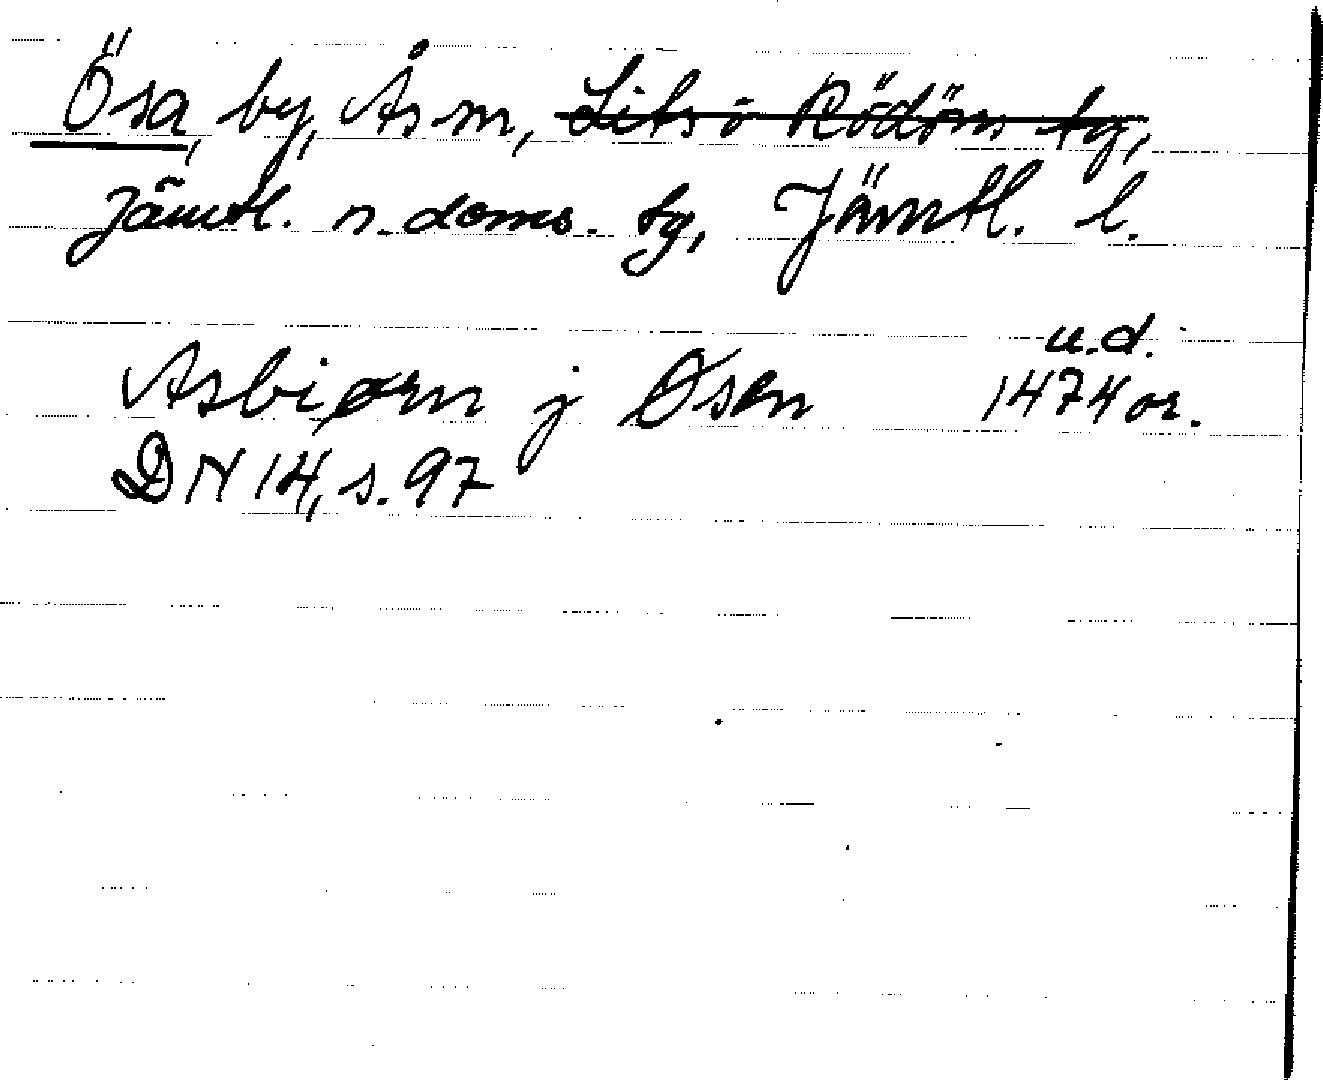 Ösa, by, Ås sn, Lits o Rödöns tg,
Jämtl. n. doms. tg, Jämtl. l.
u.d.
Asbiørn j Øsen 1474 or.
DN 14, s. 97